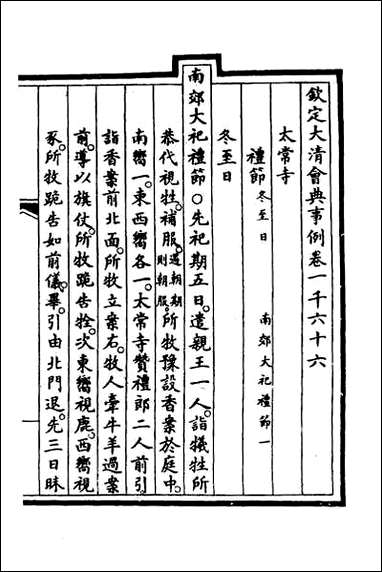 欽定大清會典事例卷一千六十六
太常寺
禮節 冬至日 南郊大祀禮節一
冬至日
南郊大祀禮節○先祀期五日。遣親王一人。詣犧牲所
恭代視牲。補服。遇朝期則朝服。所牧豫設香案於庭中。
南嚮一。東西嚮各一。太常寺贊禮郎二人前引
詣香案前北面。所牧立案右。牧人牽牛羊過案
前。導以旗仗。所牧跪告牷。次東嚮視鹿。西嚮視
豕。所牧跪告如前儀。畢。引由北門退。先三日昧